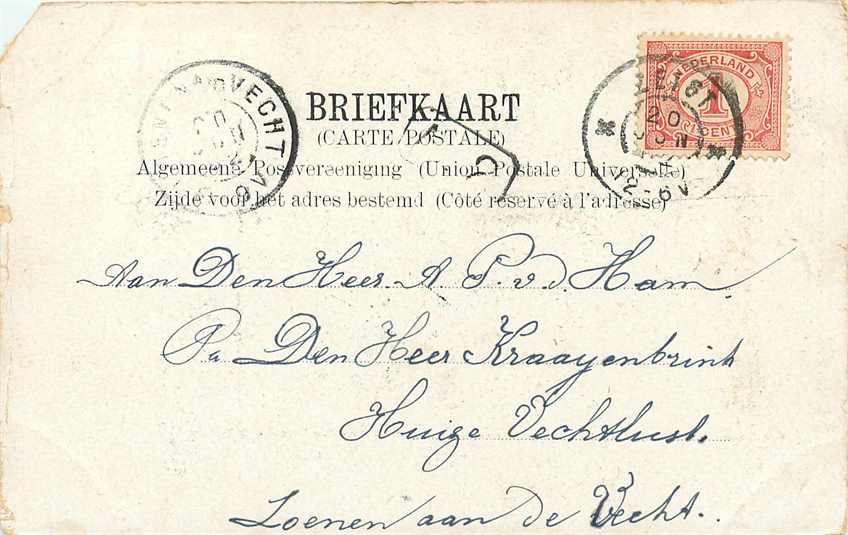 BRIEFKAART
(CARTE POSTALE)
Algemeene Postvereeniging (Union Postale Universelle)
Zijde voor het adres bestemd (Côté réservé à l'adresse)
NEDERLAND
1
CENT
VECHT
20
JUN
12-6V
Aan Den Heer A P. v. d. Ham
Pa Den Heer Kraayenbrink
Huize Vechtlust.
Loenen aan de Vecht.